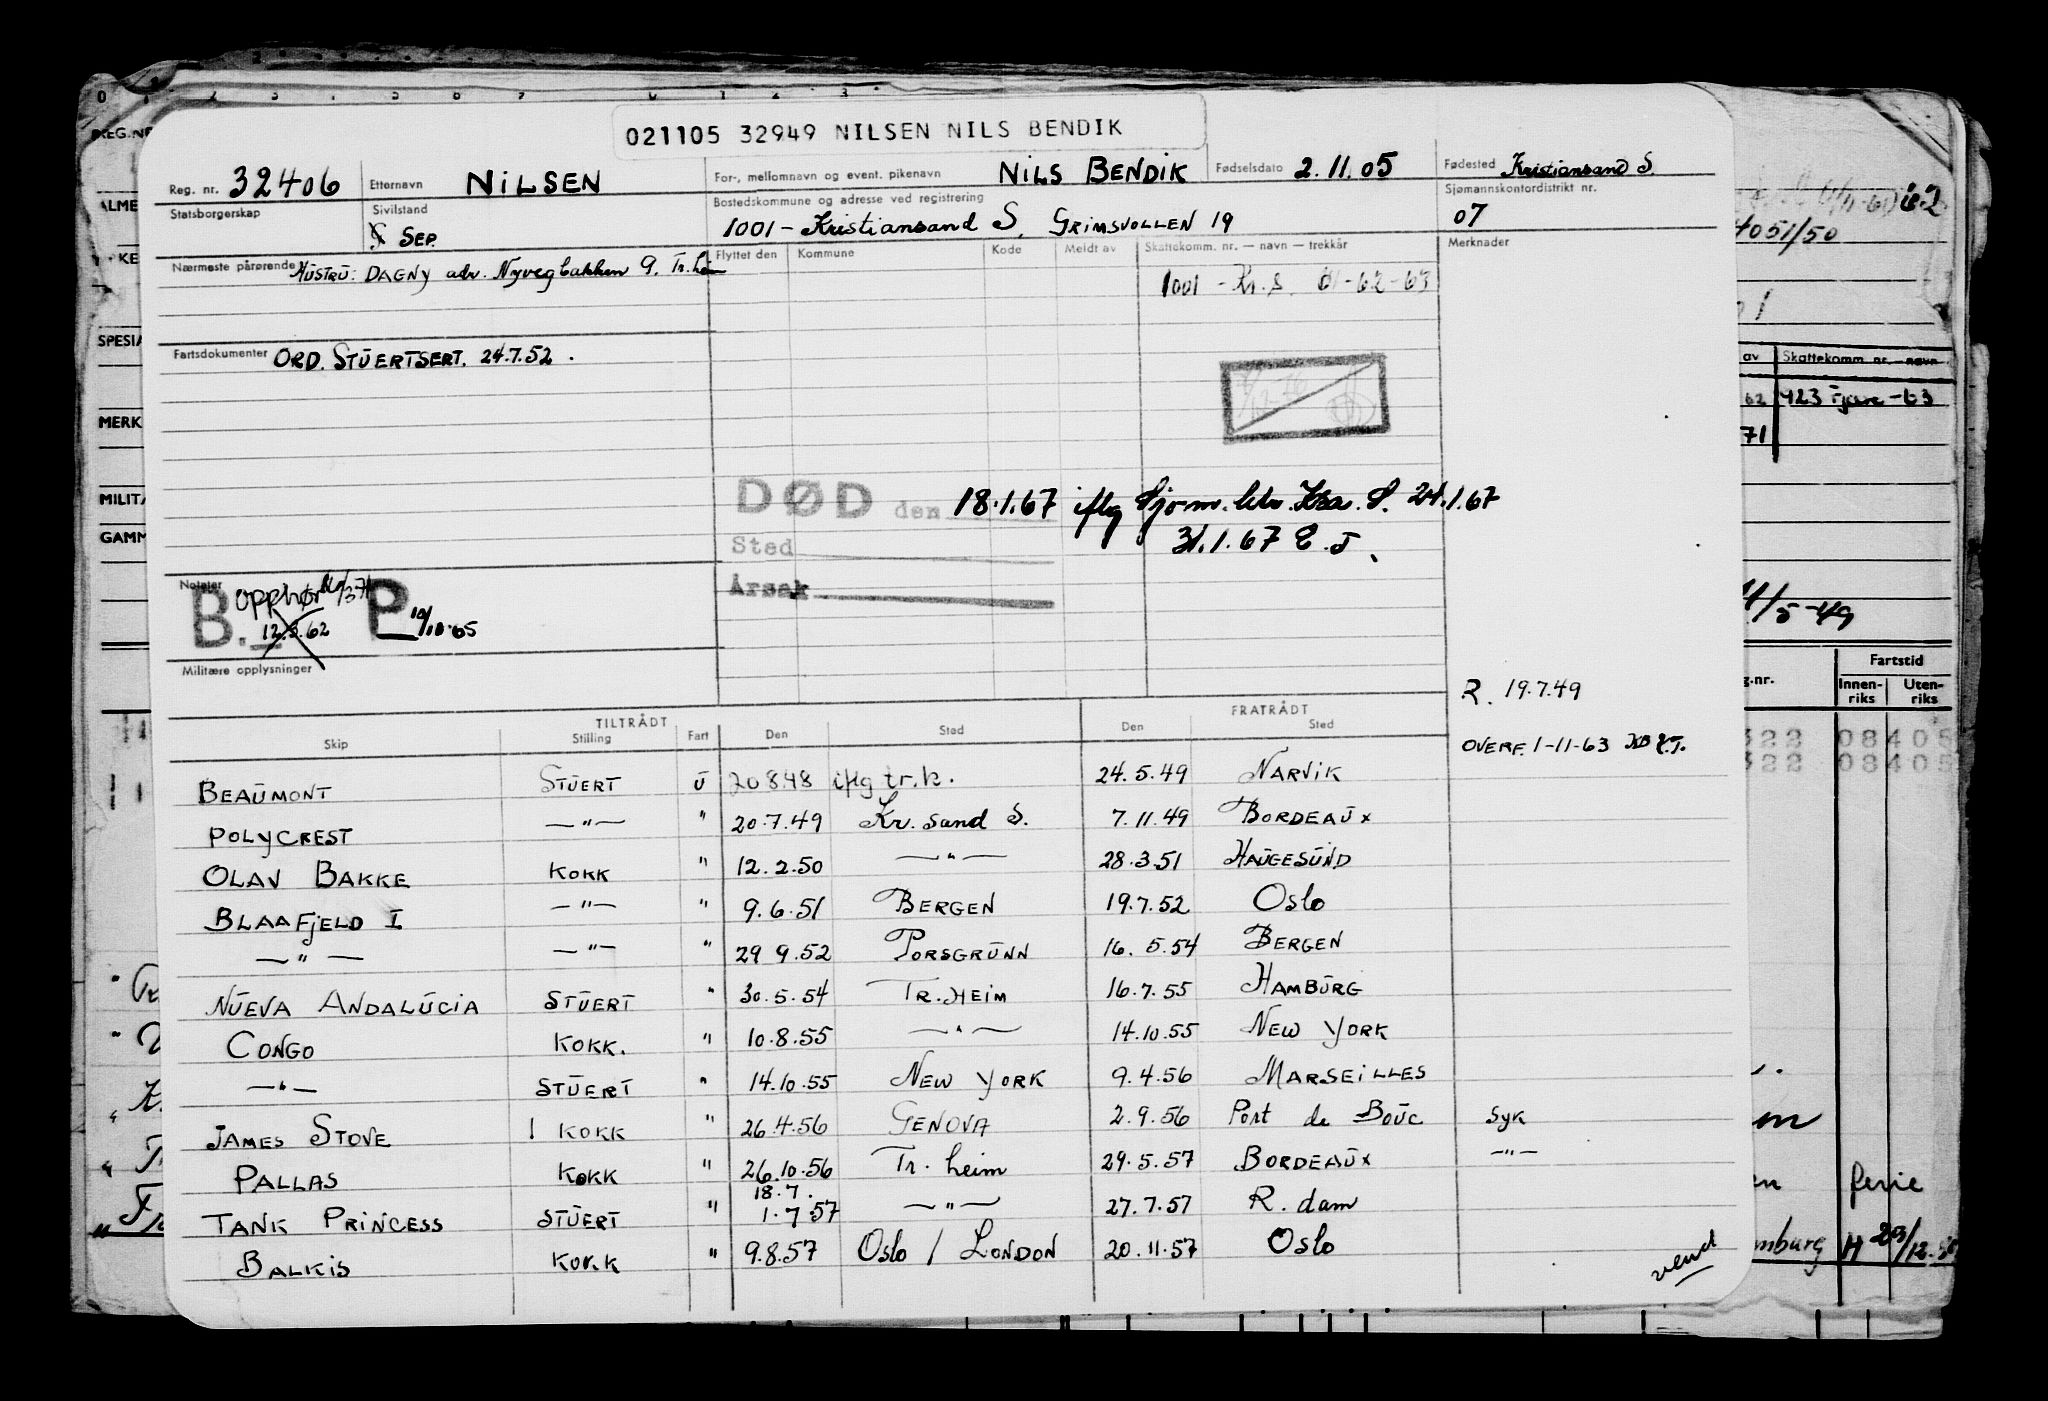 021105 32949 NILSEN NILS BENDIK
Reg. nr. 32406 Etternavn NILSEN For-, mellomnavn og event. pikenavn NILS BENDIK Fødselsdato 2.11.05 Fødested Kristiansand S.
Statsborgerskap Sivilstand SEP. Bostedskommune og adresse ved registrering 1001 - Kristiansand S. GRIMSVOLLEN 19 Sjømannskontordistrikt nr. 07
Nærmeste pårørende HUSTRU: DAGNY adr. Nyvegbakken 9. Tr.heim
Flyttet den Kommune Kode Meldt av Skattekomm. nr. — navn — trekkår Merknader
1001 - Kr.S. 61-62-63
Fartsdokumenter ORD. STUERTSERT. 24.7.52.
DØD den 18.1.67 iflg Sjøm.ktr. Kra. S. 24.1.67
31.1.67 E.J.
Sted
Årsak
Notater
B. opphør
12.3.62
P 10/10.65
Militære opplysninger
R. 19.7.49
OVERF. 1-11-63
TILTRÅDT FRATRÅDT
Skip Stilling Fart Den Sted Den Sted
BEAUMONT STUERT U 20848 iflg tr.k. 24.5.49 NARVIK
POLYCREST —"— " 20.7.49 Kr.sand S. 7.11.49 BORDEAUX
OLAV BAKKE KOKK " 12.2.50 —"— 28.3.51 HAUGESUND
BLAAFJELD I —"— " 9.6.51 BERGEN 19.7.52 Oslo
—"— —"— " 29 9.52 PORSGRUNN 16.5.54 BERGEN
NUEVA ANDALUCIA STUERT " 30.5.54 TR.HEIM 16.7.55 HAMBURG
CONGO KOKK. " 10.8.55 —"— 14.10.55 NEW YORK
—"— STUERT " 14.10.55 NEW YORK 9.4.56 MARSEILLES
JAMES STOVE 1 KOKK " 26.4.56 GENOVA 2.9.56 Port de BOUC SYK
PALLAS KOKK " 26.10.56 Tr.heim 29.5.57 BORDEAUX —"—
18.7.
TANK PRINCESS STUERT " 1.7.57 —"— 27.7.57 R.dam
BALKIS KOKK " 9.8.57 Oslo / LONDON 20.11.57 Oslo
vend
4051/50
av Skattekomm. nr. — navn
62 423 Fjære -63
71
Fartstid
g.nr. Innenriks Utenriks
322 08405
322 08405
ferie